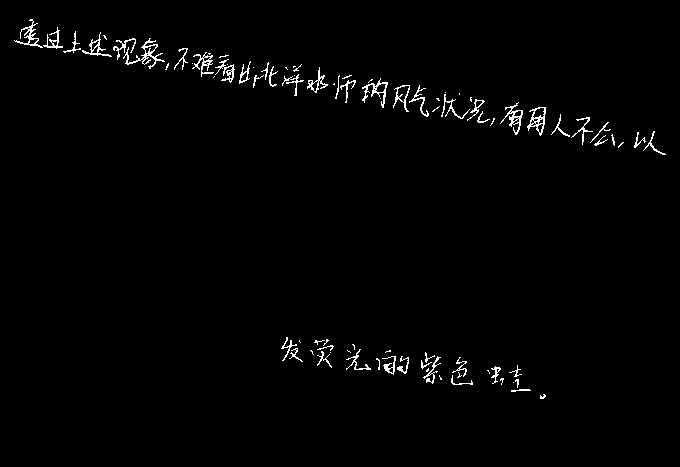 透过上述现象,不难看出,北洋水师的风气状况,有用人不公,以
发荧光的紫色蛙。